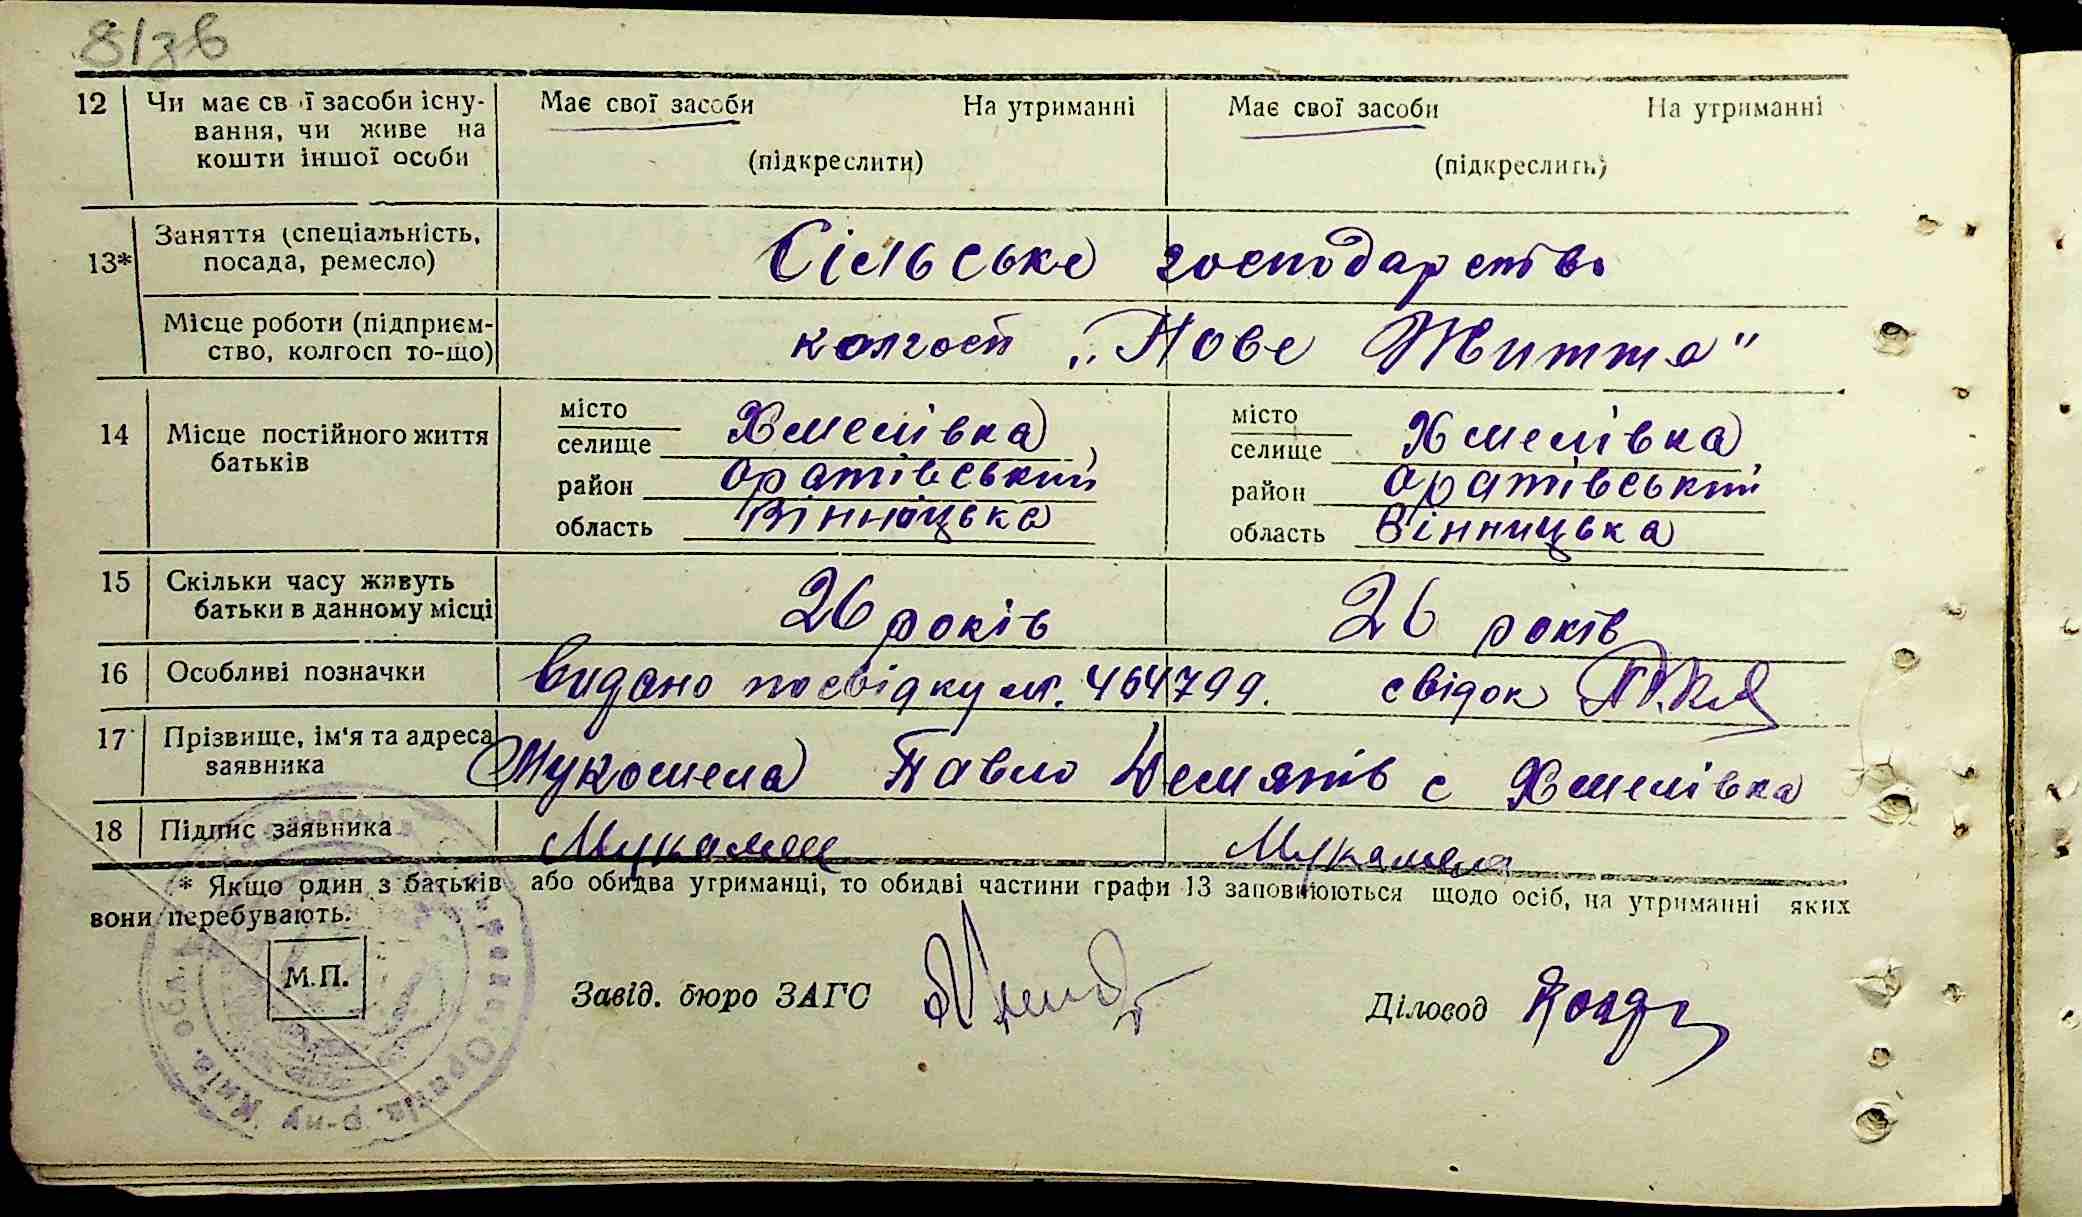 8/зв
12 Чи має свої засоби існу- Має свої засоби На утриманні Має свої засоби На утриманні
вання, чи живе на
кошти іншої особи (підкреслити) (підкреслить)
13* Заняття (спеціальність, Сільське господарство
посада, ремесло)
Місце роботи (підприєм- колгосп „Нове Життя"
ство, колгосп то-що)
14 Місце постійного життя батьків
місто селище Хмелівка, місто селище Хмелівка,
район Оратівський район Оратівський
область Вінницька область Вінницька
15 Скільки часу живуть 26 років 26 років
батьки в данному місці
16 Особливі позначки Видано посвідку №. 464799. свідок
17 Прізвище, ім'я та адреса Мукомела Павло Демянів с Хмелівка
заявника
18 Підпис заявника Мукомел Мукамела
* Якщо один з батьків або обидва утриманці, то обидві частини графи 13 заповнюються щодо осіб, на утриманні яких
вони перебувають.
М.П. Завід. бюро ЗАГС Діловод